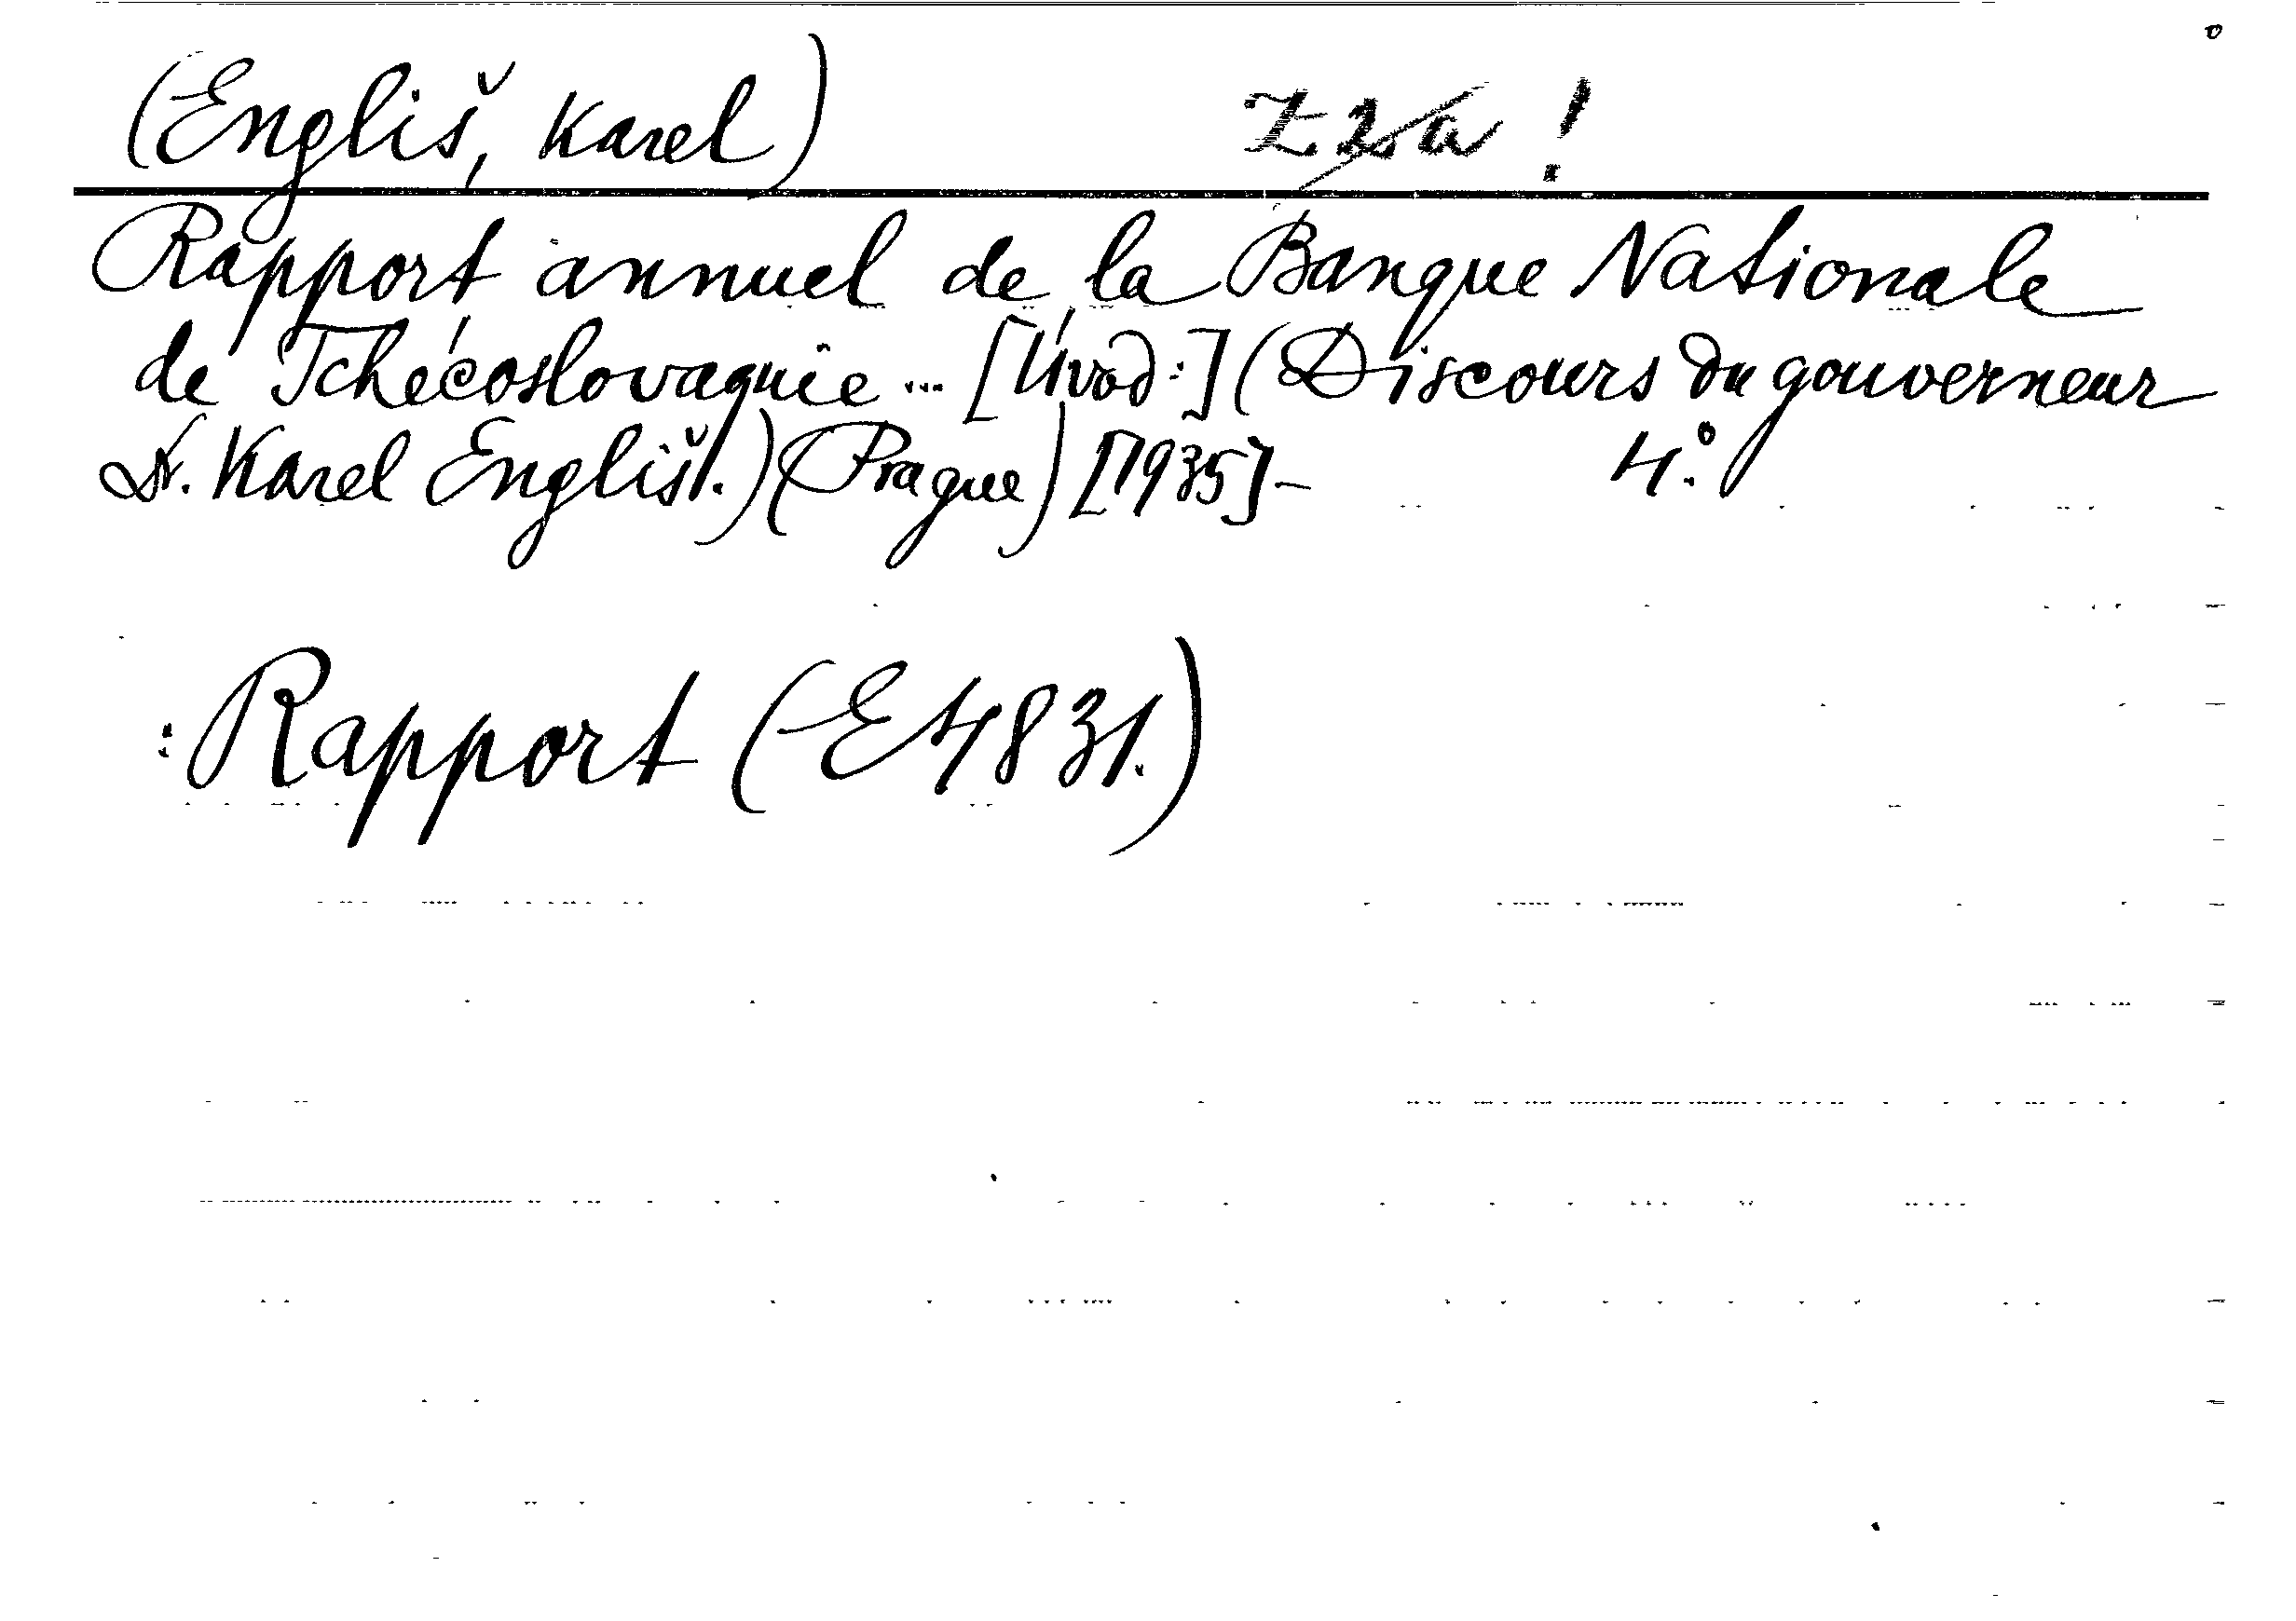 (Engliš, Karel)
Rapport annuel de la Banque Nationale
de Tchécoslovaquie ... [Úvod:] (Discours du gouverneur
Dr. Karel Engliš.) (Prague) [1935]- 4.°
: Rapport (E 4831.)